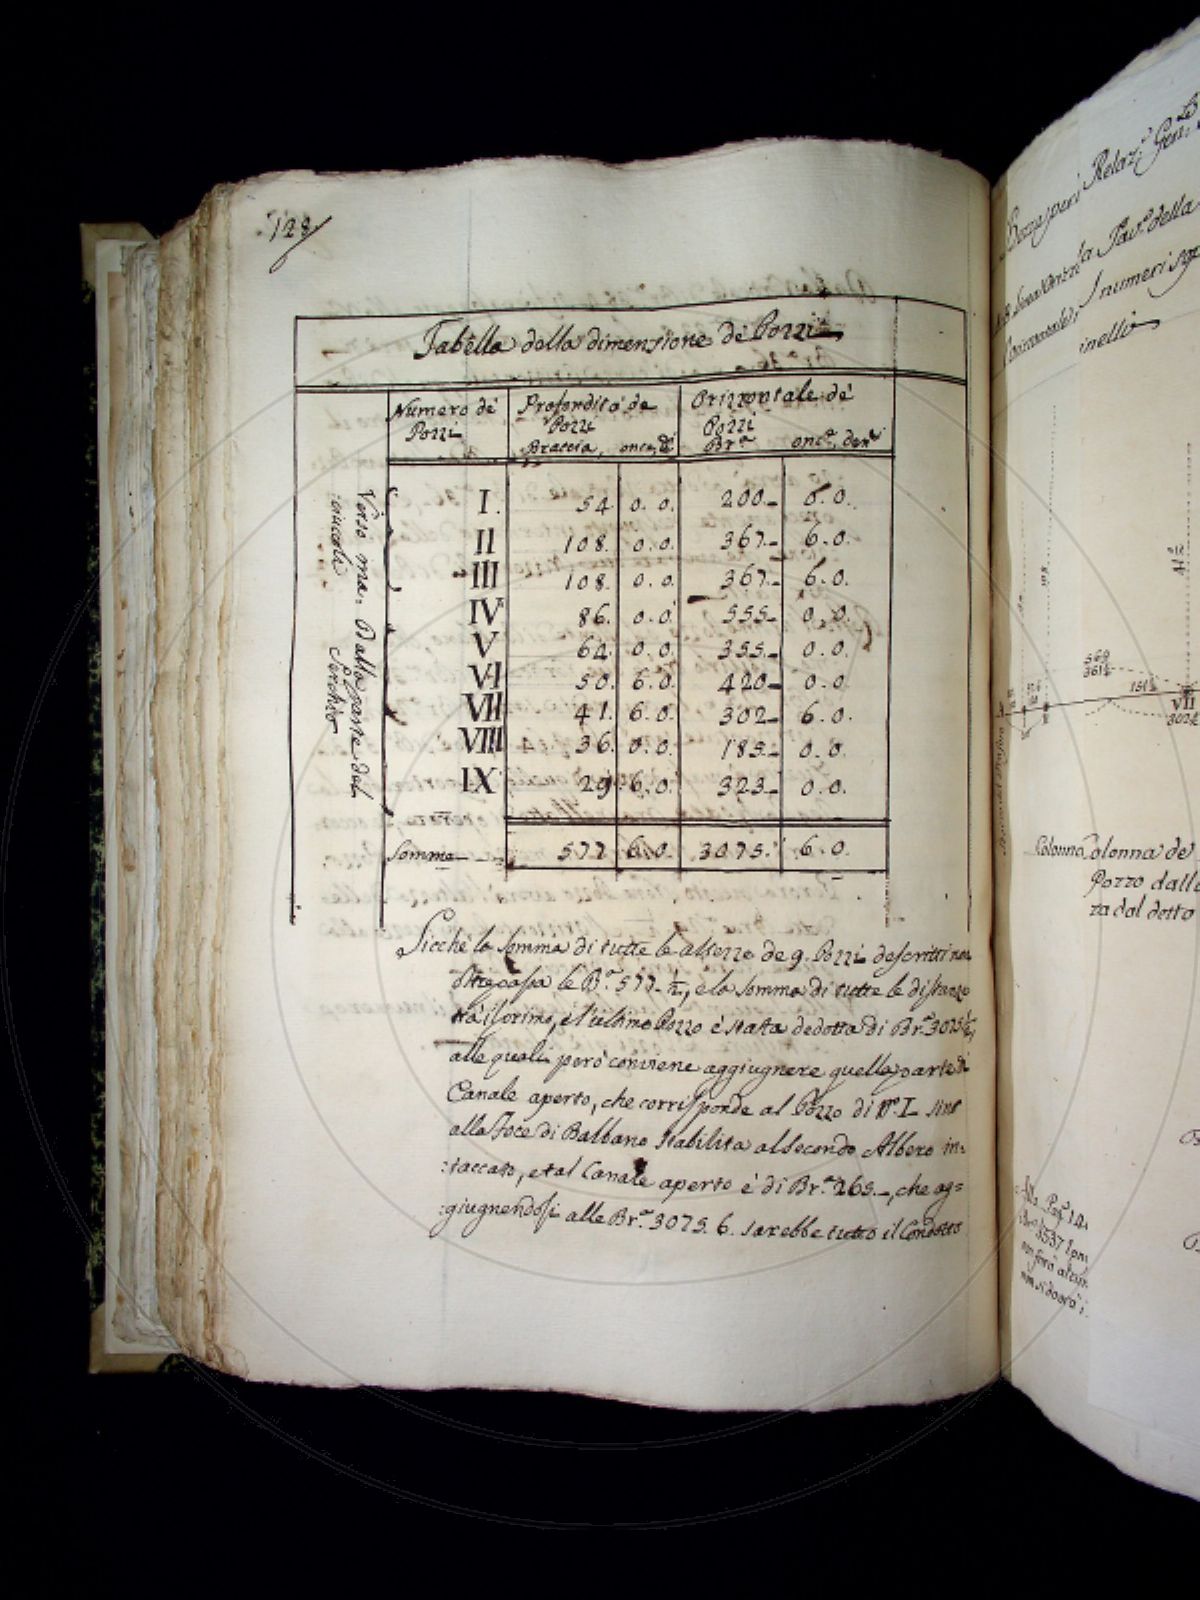 128
Tabella della dimensione de Pozzi
Numero de Pozzi
Profondità de Pozzi
Braccia, once, di
Orizzontale de Pozzi
Br.e onc.e, den.i
I. 54 0. 0. 200. 6. 0.
II 108. 0. 0. 367. 6. 0.
III 108. 0. 0. 367. 6. 0.
IV 86. 0. 0. 555. 0. 0.
V 64. 0. 0. 355. 0. 0.
VI 50. 6. 0. 420. 0. 0.
VII 41. 6. 0. 302. 6. 0.
VIII 36. 0. 0. 185. 0. 0.
IX 29. 6. 0. 323. 0. 0.
Somma 577 6. 0. 3075. 6. 0.
Verso ma.
Dalla parte dal
Serchio
Sicchè la somma di tutte le altezze de 9. Pozzi descritti non
oltrepassa le Br.e 577 ½, e la somma di tutte le distanze
trà il primo, e l'ultimo Pozzo è stata dedotta di Br.e 3075 ½,
alle quali però conviene aggiugnere quella parte di
Canale aperto, che corrisponde al Pozzo di N.o I. sino
alla Foce di Balbano stabilita al secondo Albero in=
:taccato, e tal Canale aperto è di Br.e 265.–, che ag=
:giugnendosi alle Br.e 3075. 6. sarebbe tutto il Condotto
Relaz.e Gen.le
Pav.o della
I numeri
inelli
569
361½
151½
VII
302½
Colonna Colonna de
Pozzo dalla
za dal detto
3537